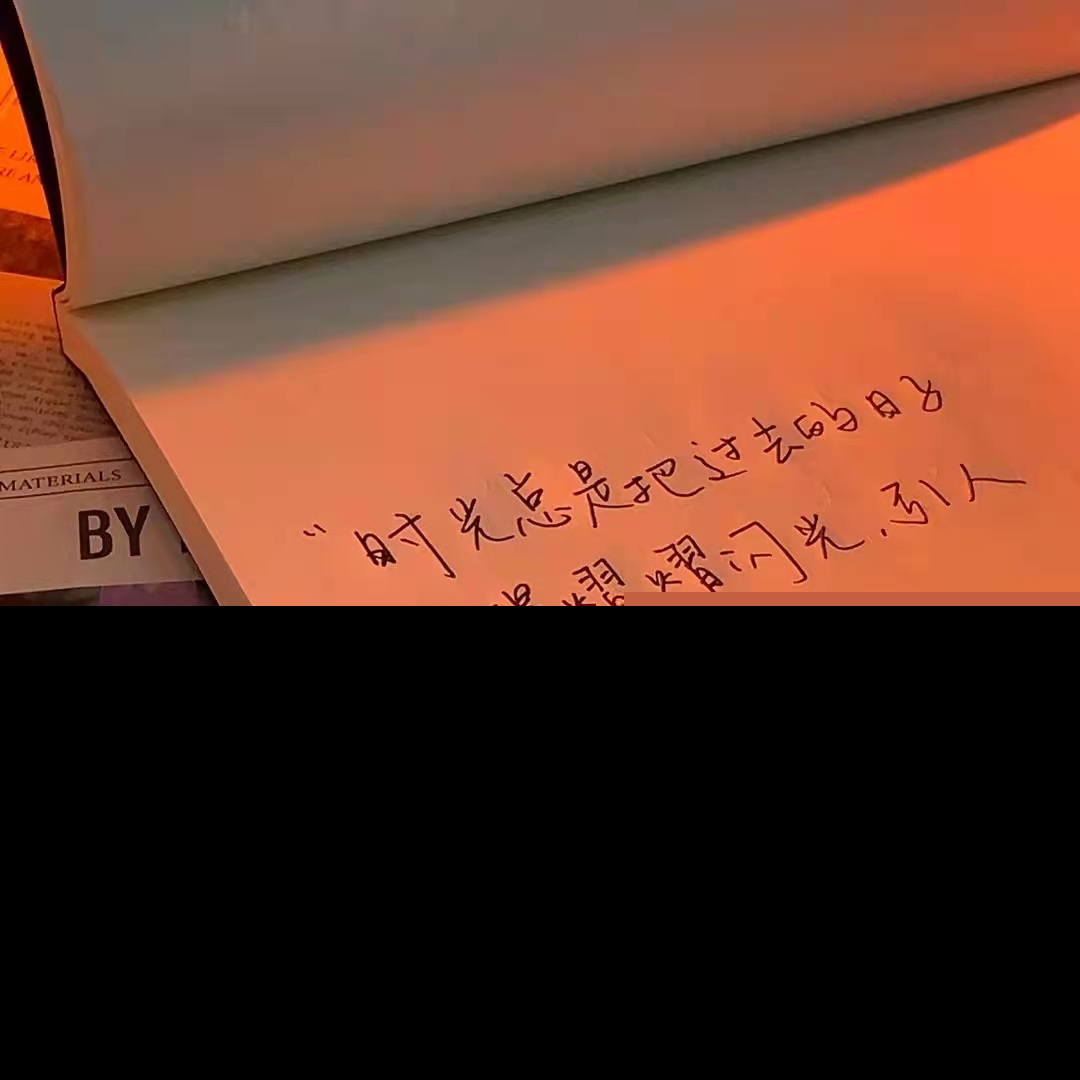 MATERIALS
BY
“时光总是把过去的日子
熠熠闪光.引人